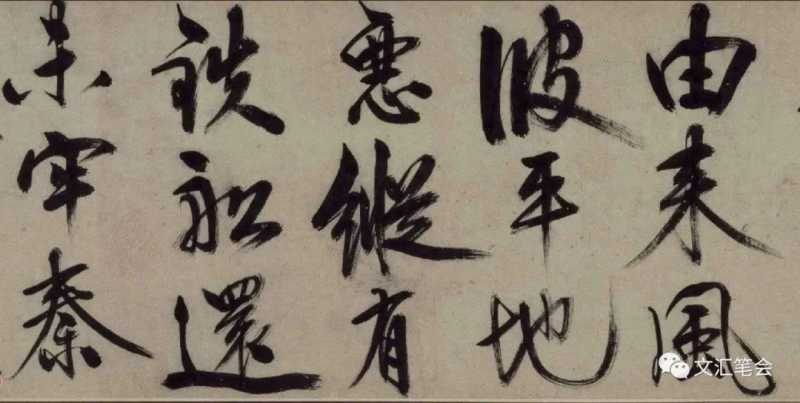 由来風
波平地
悪縱有
鉄舩還
未牢秦
文汇笔会